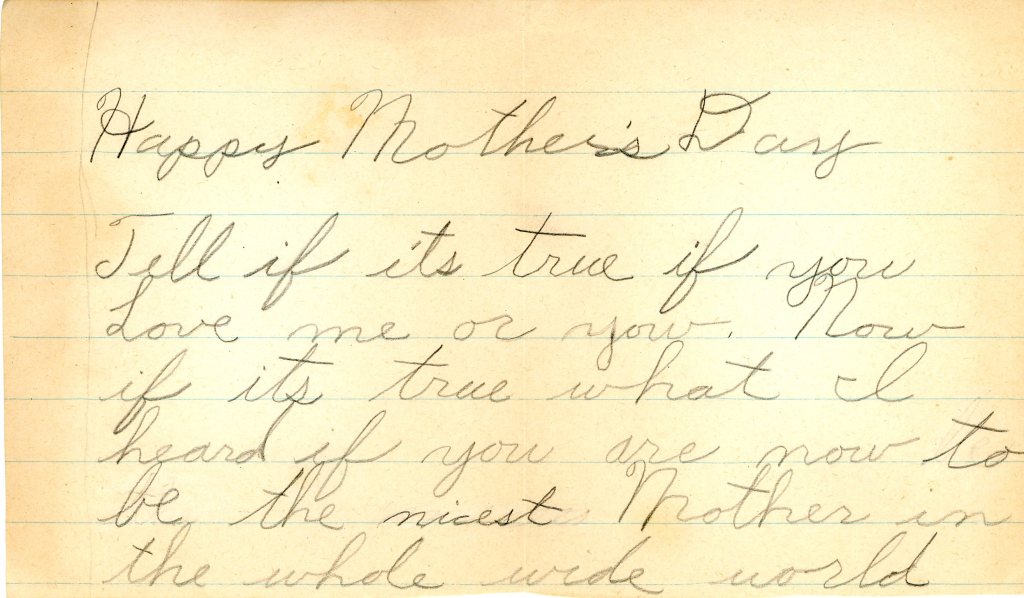 Happy Mother's Day
Tell if its true if you
Love me or yow. Now
if its true what I
heard if you are now to
be the nicest Mother in
the whole wide world